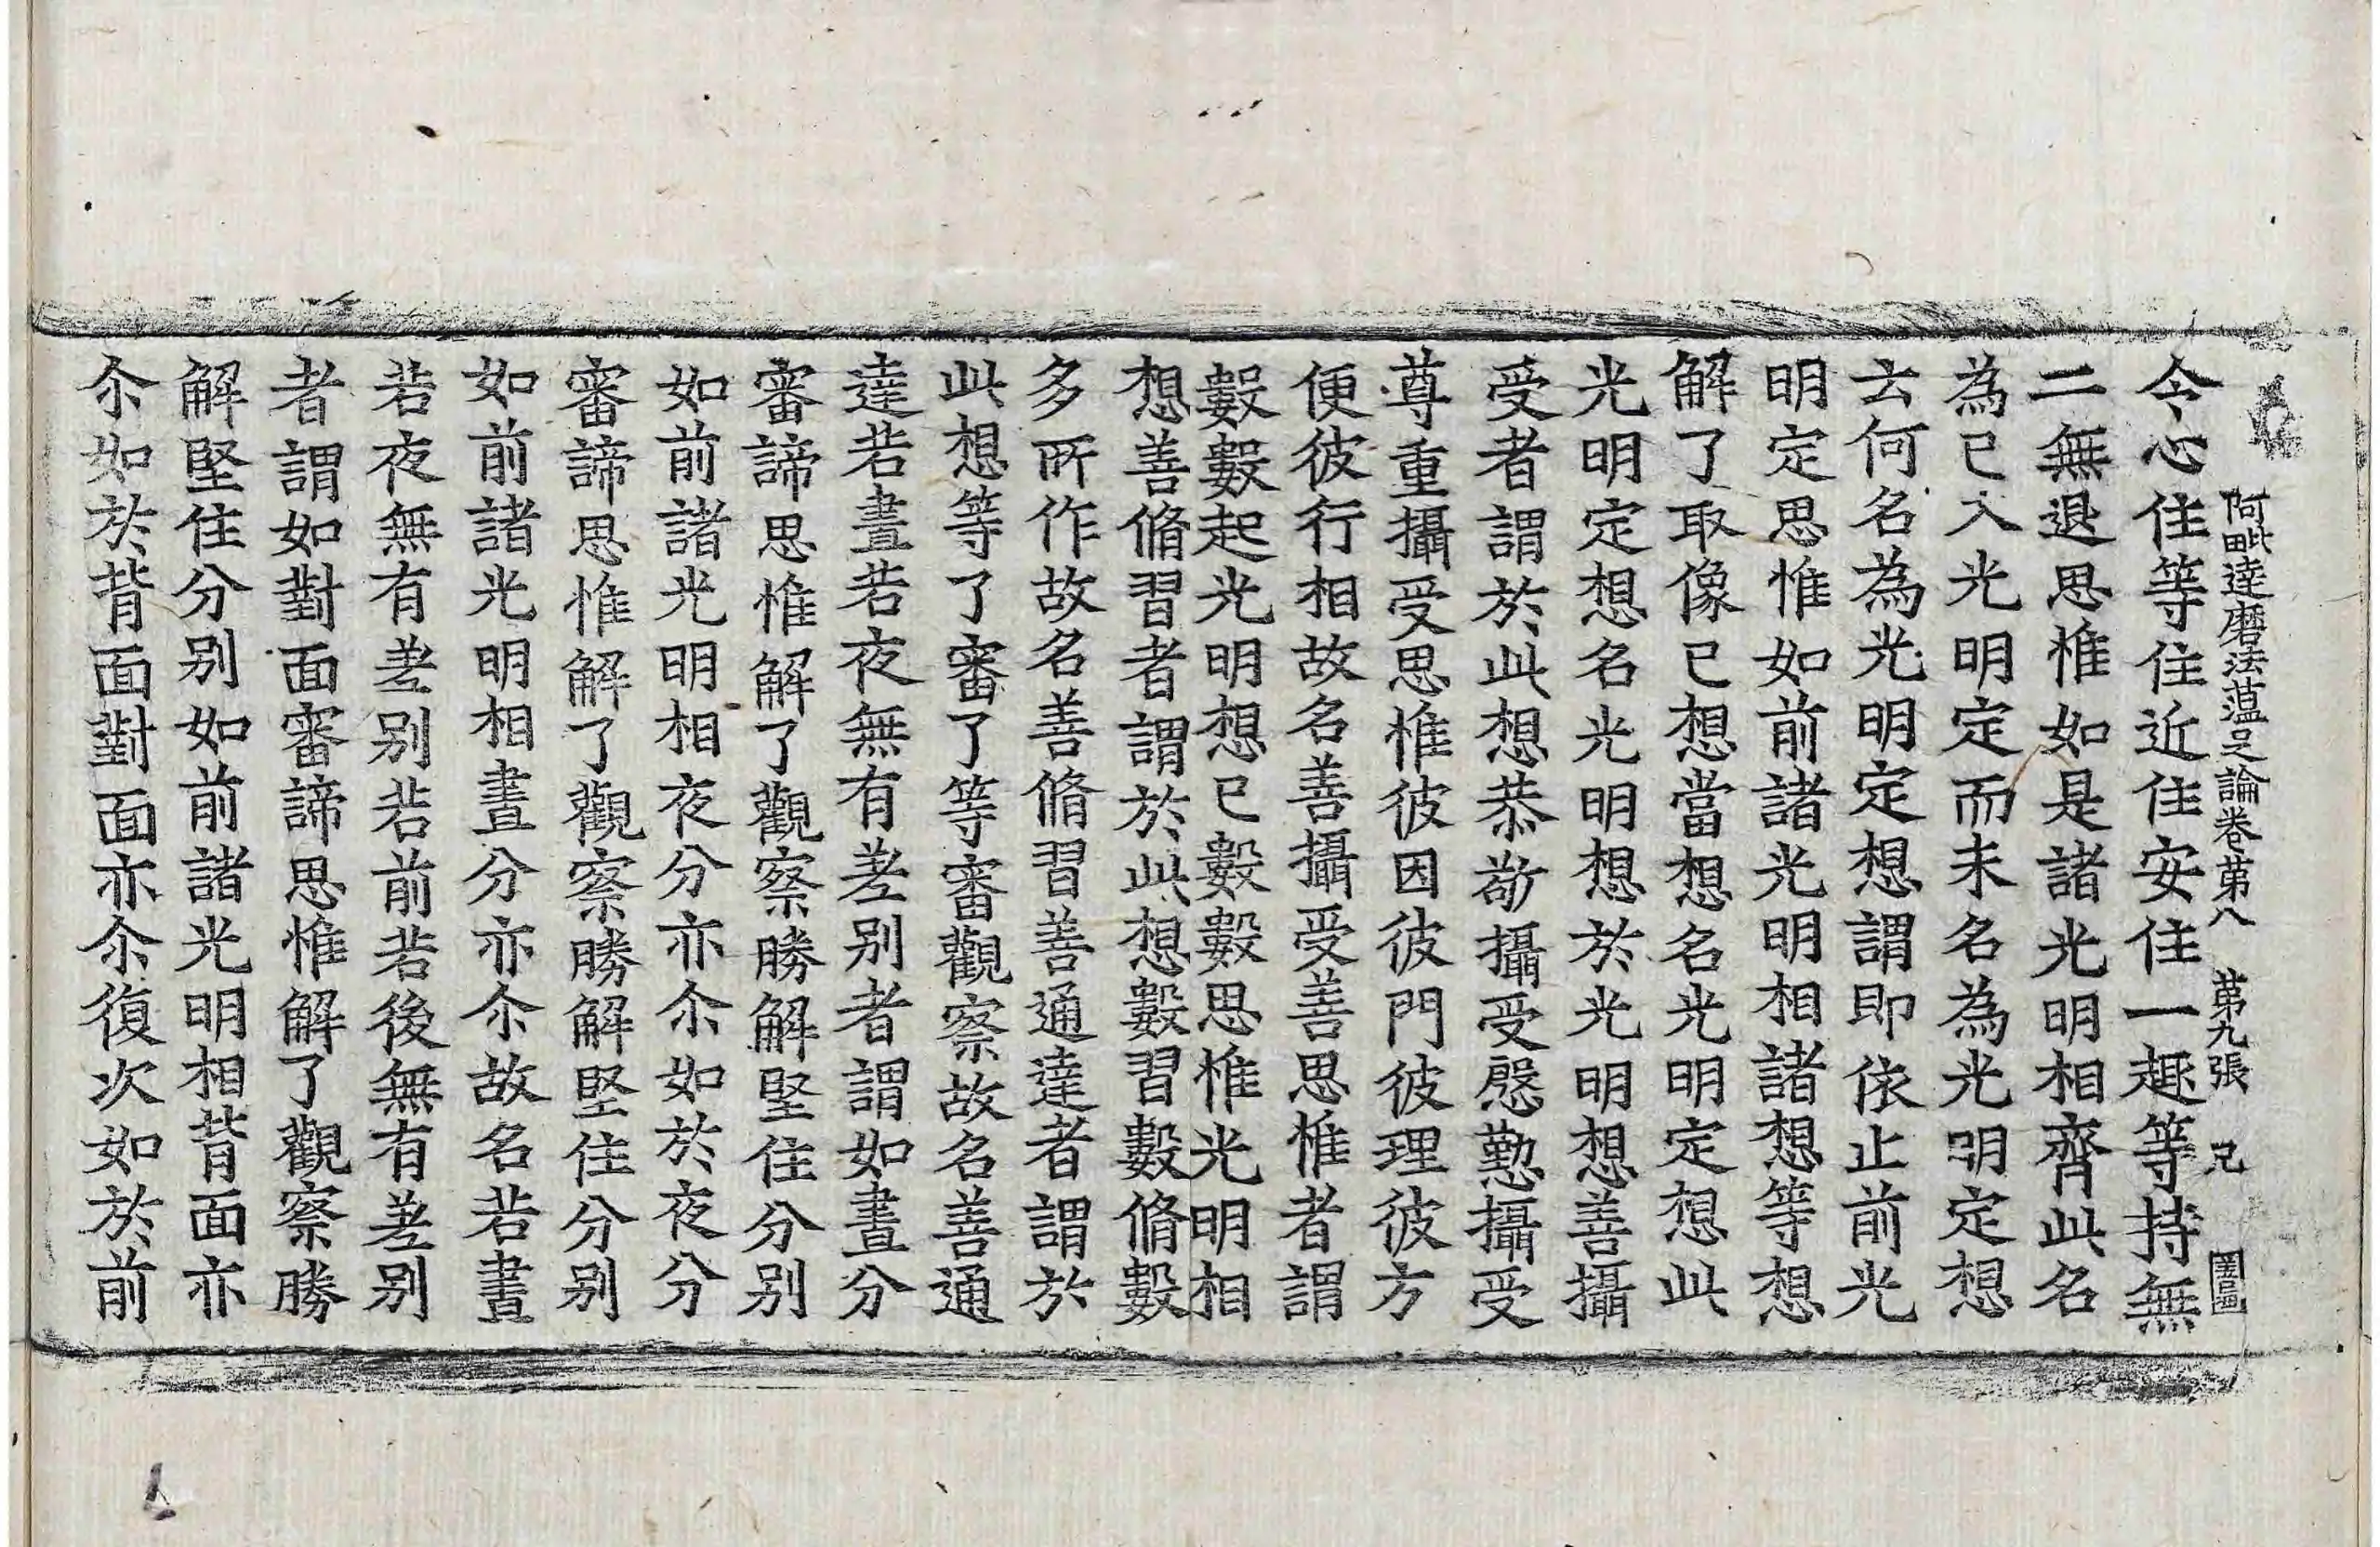 阿毗達磨法蘊足論卷第八 第九張 兄
今心住等住近住安住一趣等持無
二無退思惟如是諸光明相齊此名
為已入光明定而未名為光明定想
云何名為光明定想謂即依止前光
明定思惟如前諸光明相諸想等想
解了取像已想當想名光明定想此
光明定想名光明想於光明想善攝
受者謂於此想恭敬攝受慇懃攝受
尊重攝受思惟彼因彼門彼理彼方
便彼行相故名善攝受善思惟者謂
數數起光明想已數數思惟光明相
想善脩習者謂於此想數習數脩數
多所作故名善脩習善通達者謂於
此想等了審了等審觀察故名善通
達若晝若夜無有差別者謂如晝分
審諦思惟解了觀察勝解堅住分別
如前諸光明相夜分亦尒如於夜分
審諦思惟解了觀察勝解堅住分別
如前諸光明相晝分亦尒故名若晝
若夜無有差別若前若後無有差別
者謂如對面審諦思惟解了觀察勝
解堅住分別如前諸光明相背面亦
尒如於背面對面亦尒復次如於前